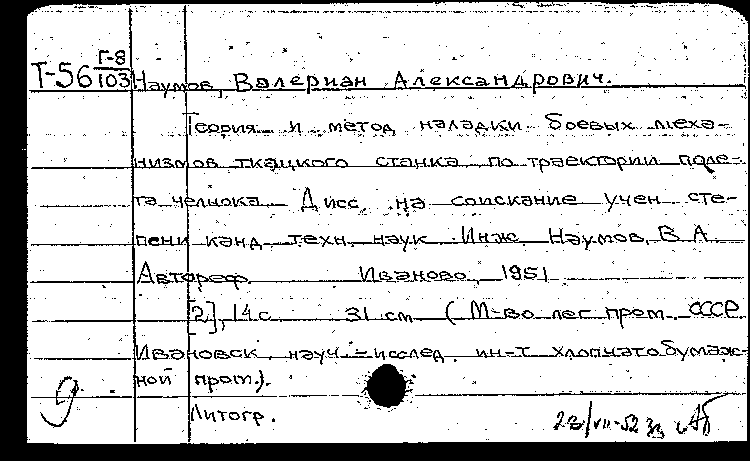 Т-56 Г-8/103 Наумов, Валериан Александрович.
Теория и метод наладки боевых меха-
низмов ткацкого станка по траектории поле-
та челнока. Дисс. на соискание учен сте-
пени канд. техн. наук Инж. Наумов, В. А.
Автореф. Иваново, 1951
[2], 14 с. 31 см. (М-во лег пром. СССР
Ивановск. науч.-исслед. ин-т хлопчатобумаж-
ной пром.).
Литогр.
23/VII-52